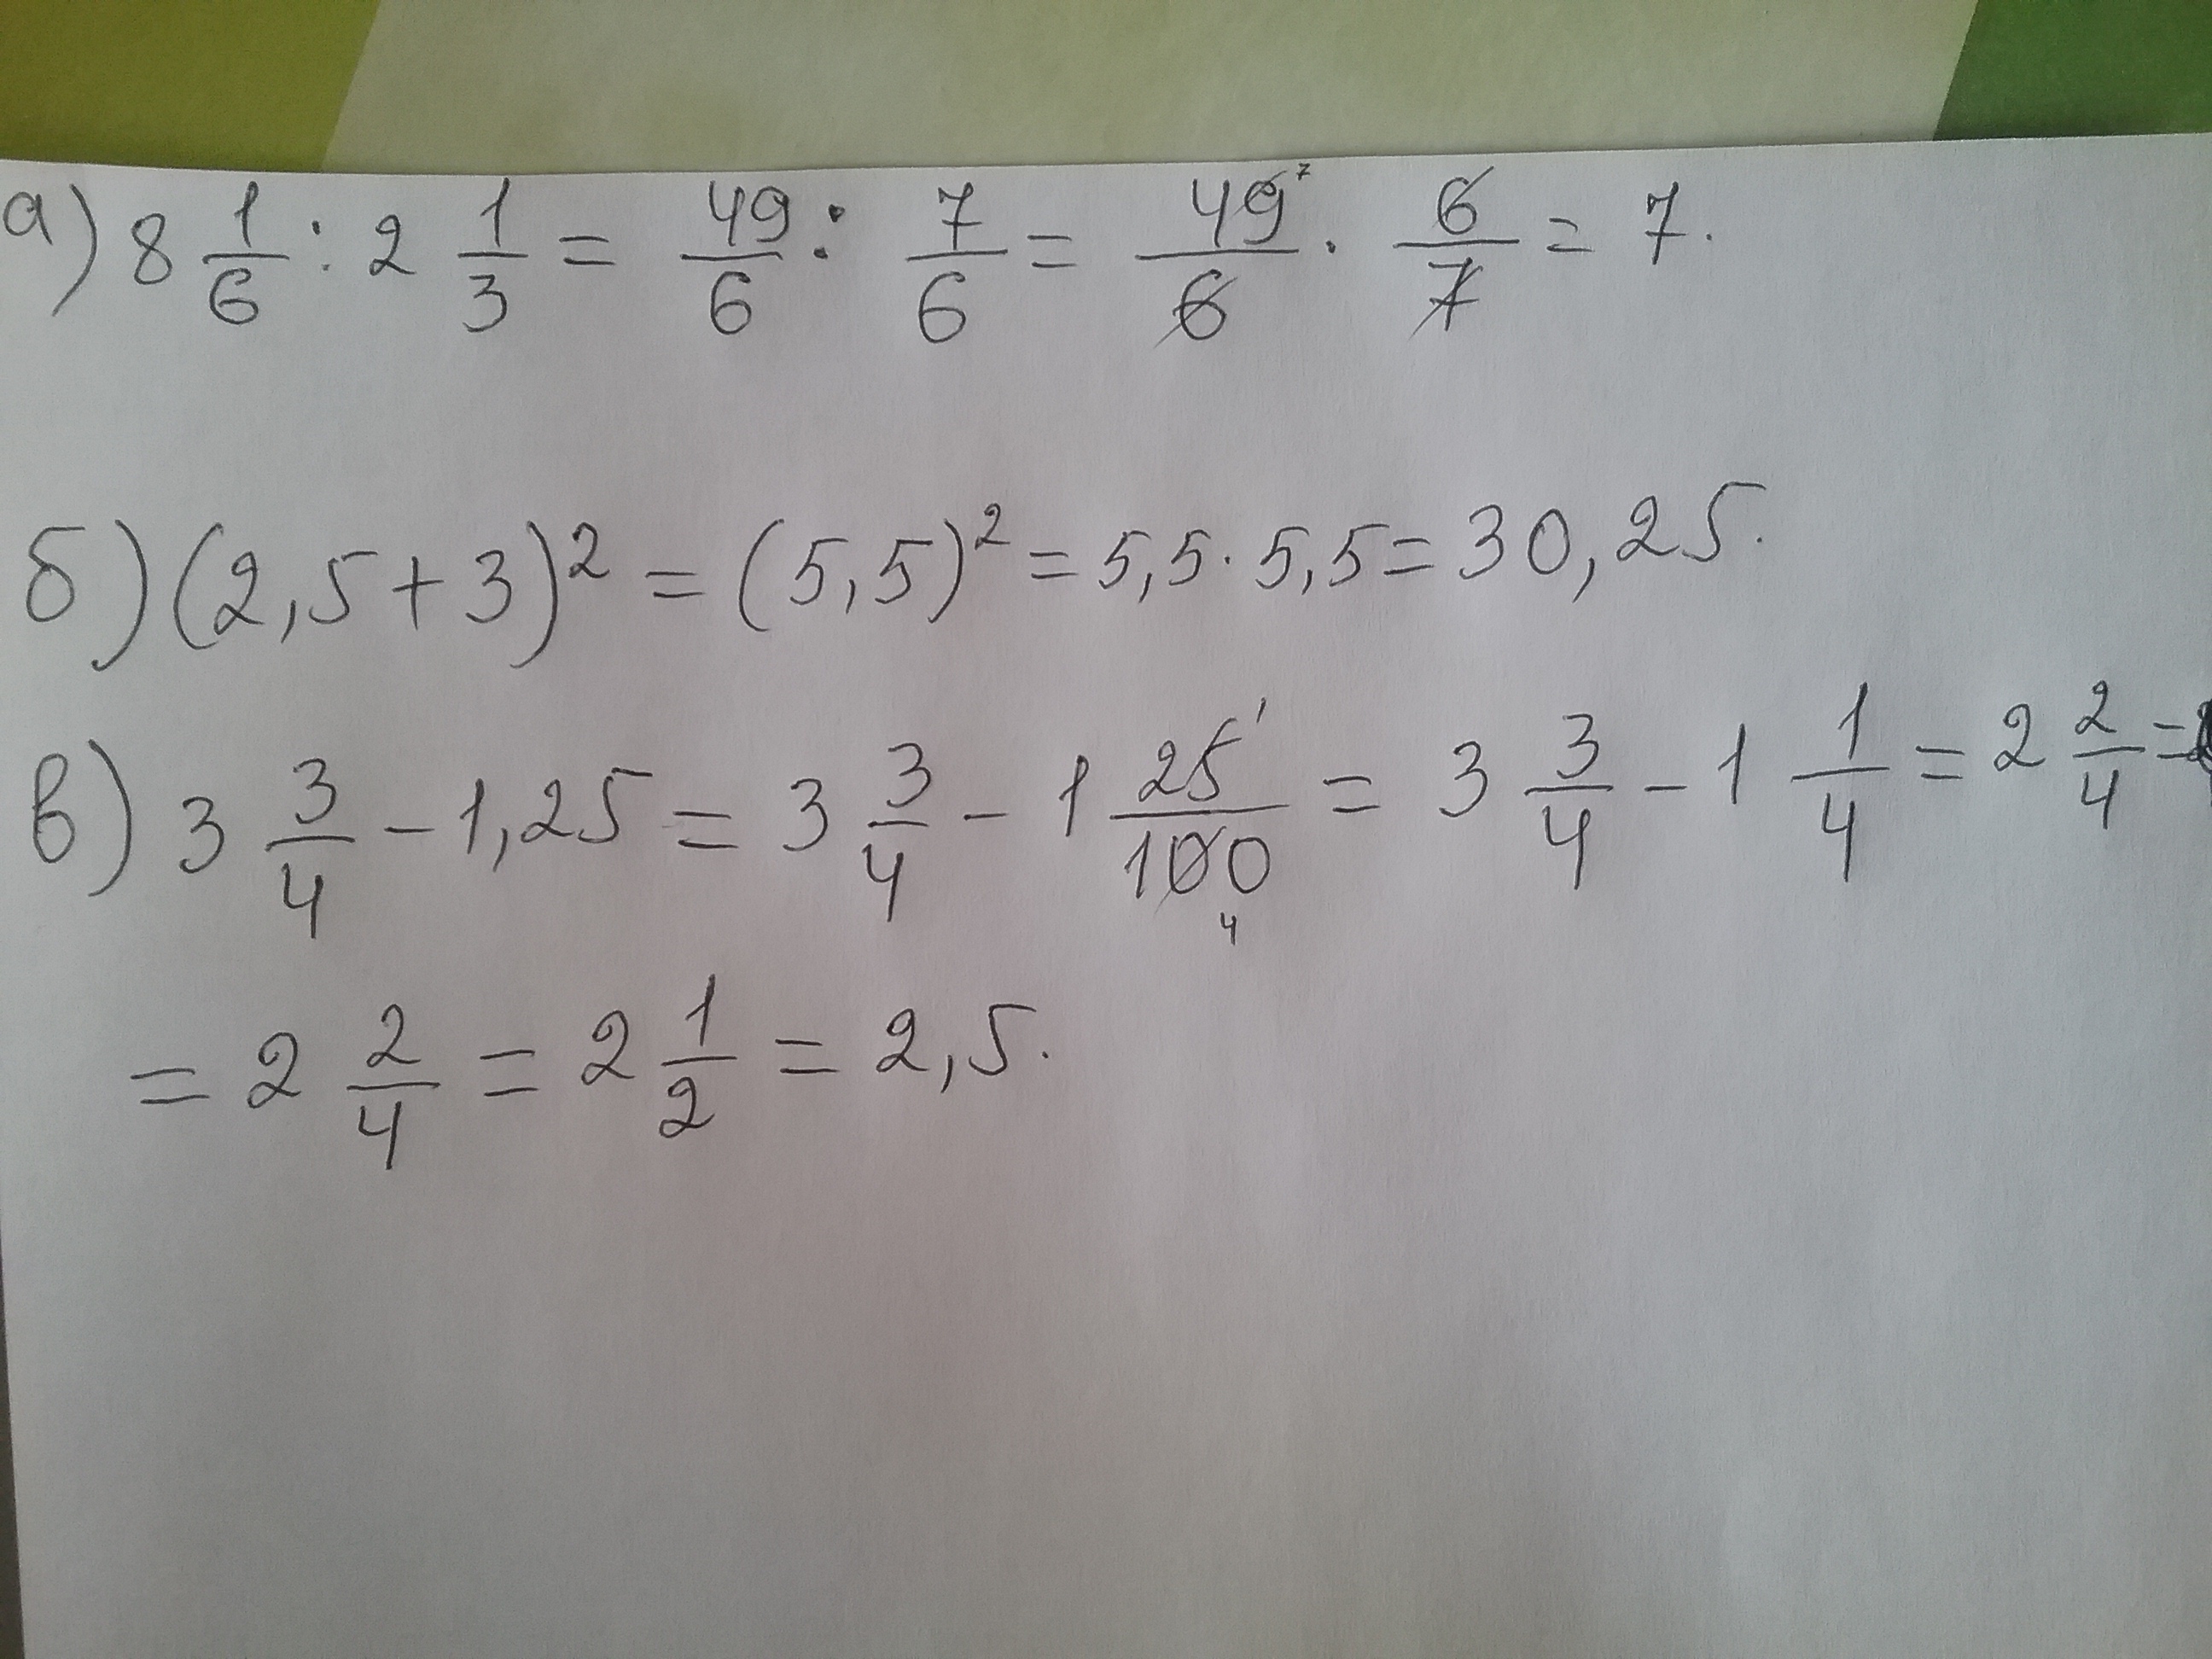 а) 8 1/6 : 2 1/3 = 49/6 : 7/6 = 49⁷/6 · 6/7 = 7.
б) (2,5 + 3)² = (5,5)² = 5,5 · 5,5 = 30,25.
в) 3 3/4 - 1,25 = 3 3/4 - 1 25¹/100₄ = 3 3/4 - 1 1/4 = 2 2/4 =
= 2 2/4 = 2 1/2 = 2,5.